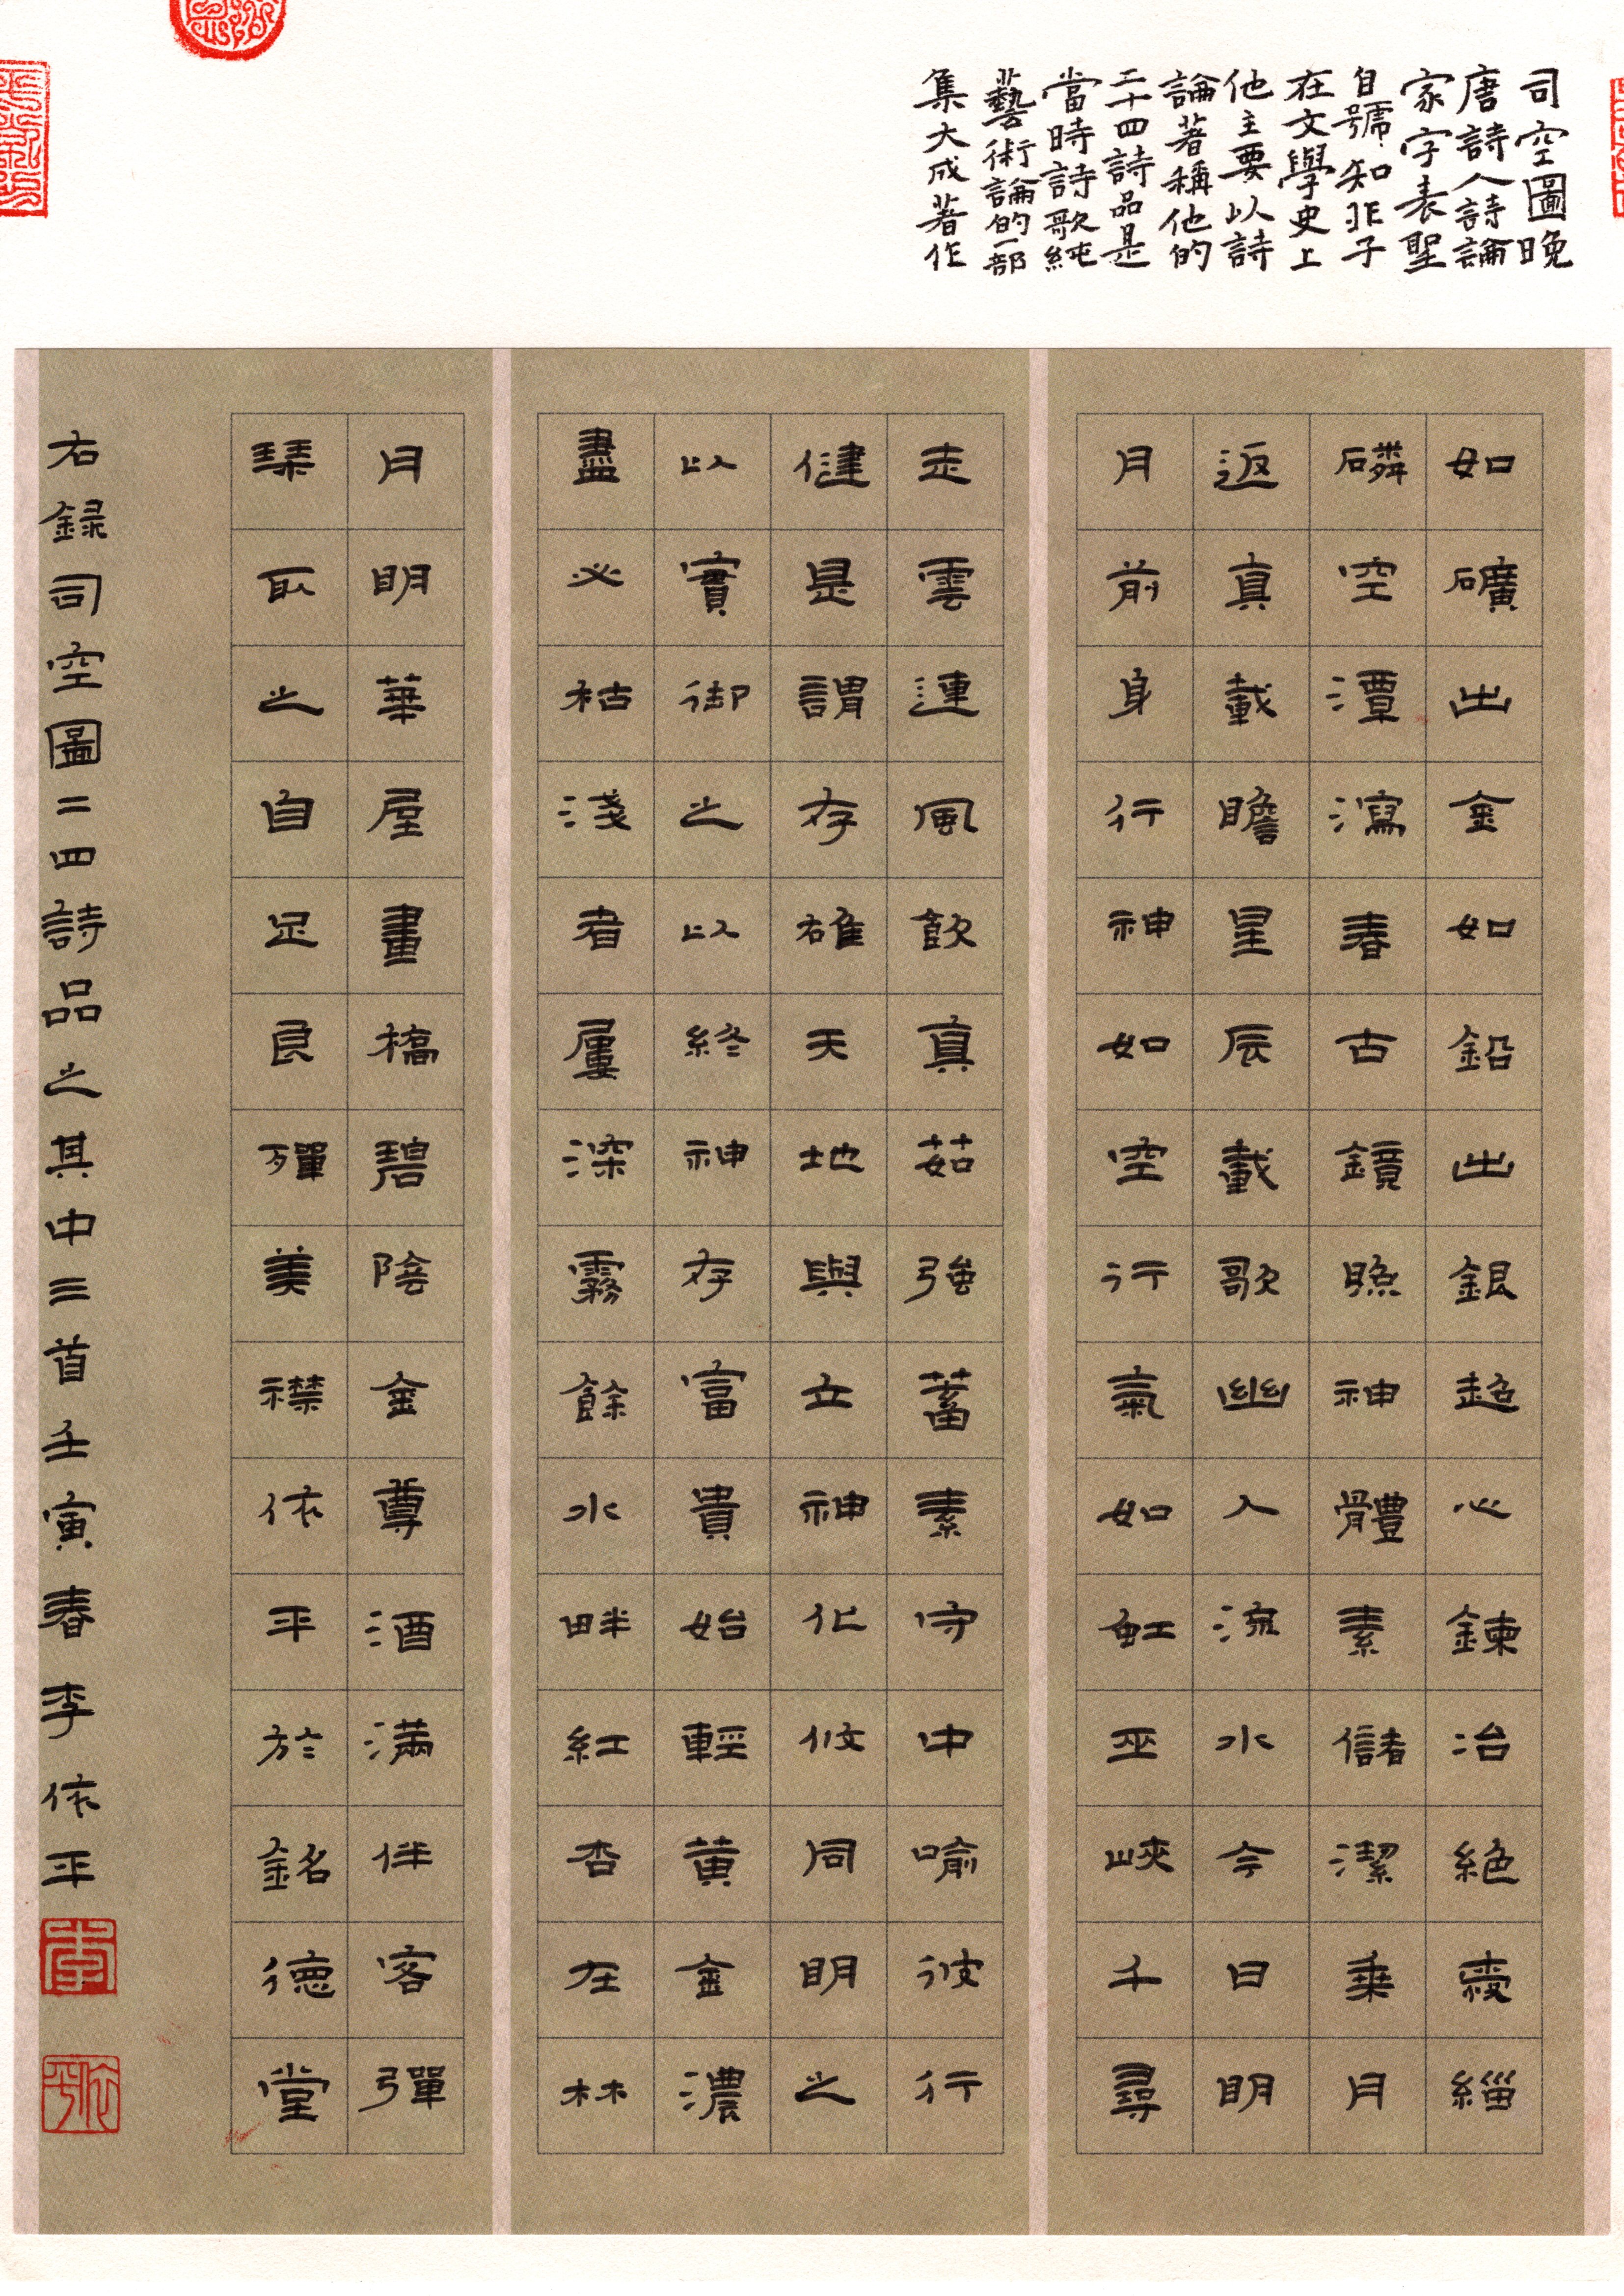 司空圖晚
唐詩人詩論
家字表聖
自號知非子
在文學史上
他主要以詩
論著稱他的
二十四詩品是
當時詩歌純
藝術論的一部
集大成著作
如礦出金如鉛出銀超心鍊冶絕愛緇
磷空潭瀉春古鏡照神體素儲潔乘月
返真載瞻星辰載歌幽人流水今日明
月前身行神如空行氣如虹巫峽千尋
走雲連風飲真茹強蓄素守中喻彼行
健是謂存雄天地與立神化攸同明之
以實御之以終神存富貴始輕黃金濃
盡必枯淺者屢深霧餘水畔紅杏在林
月明華屋畫橋碧陰金尊酒滿伴客彈
琴取之自足良殫美襟依平於銘德堂
右録司空圖二四詩品之其中三首壬寅春李依平
李
依平